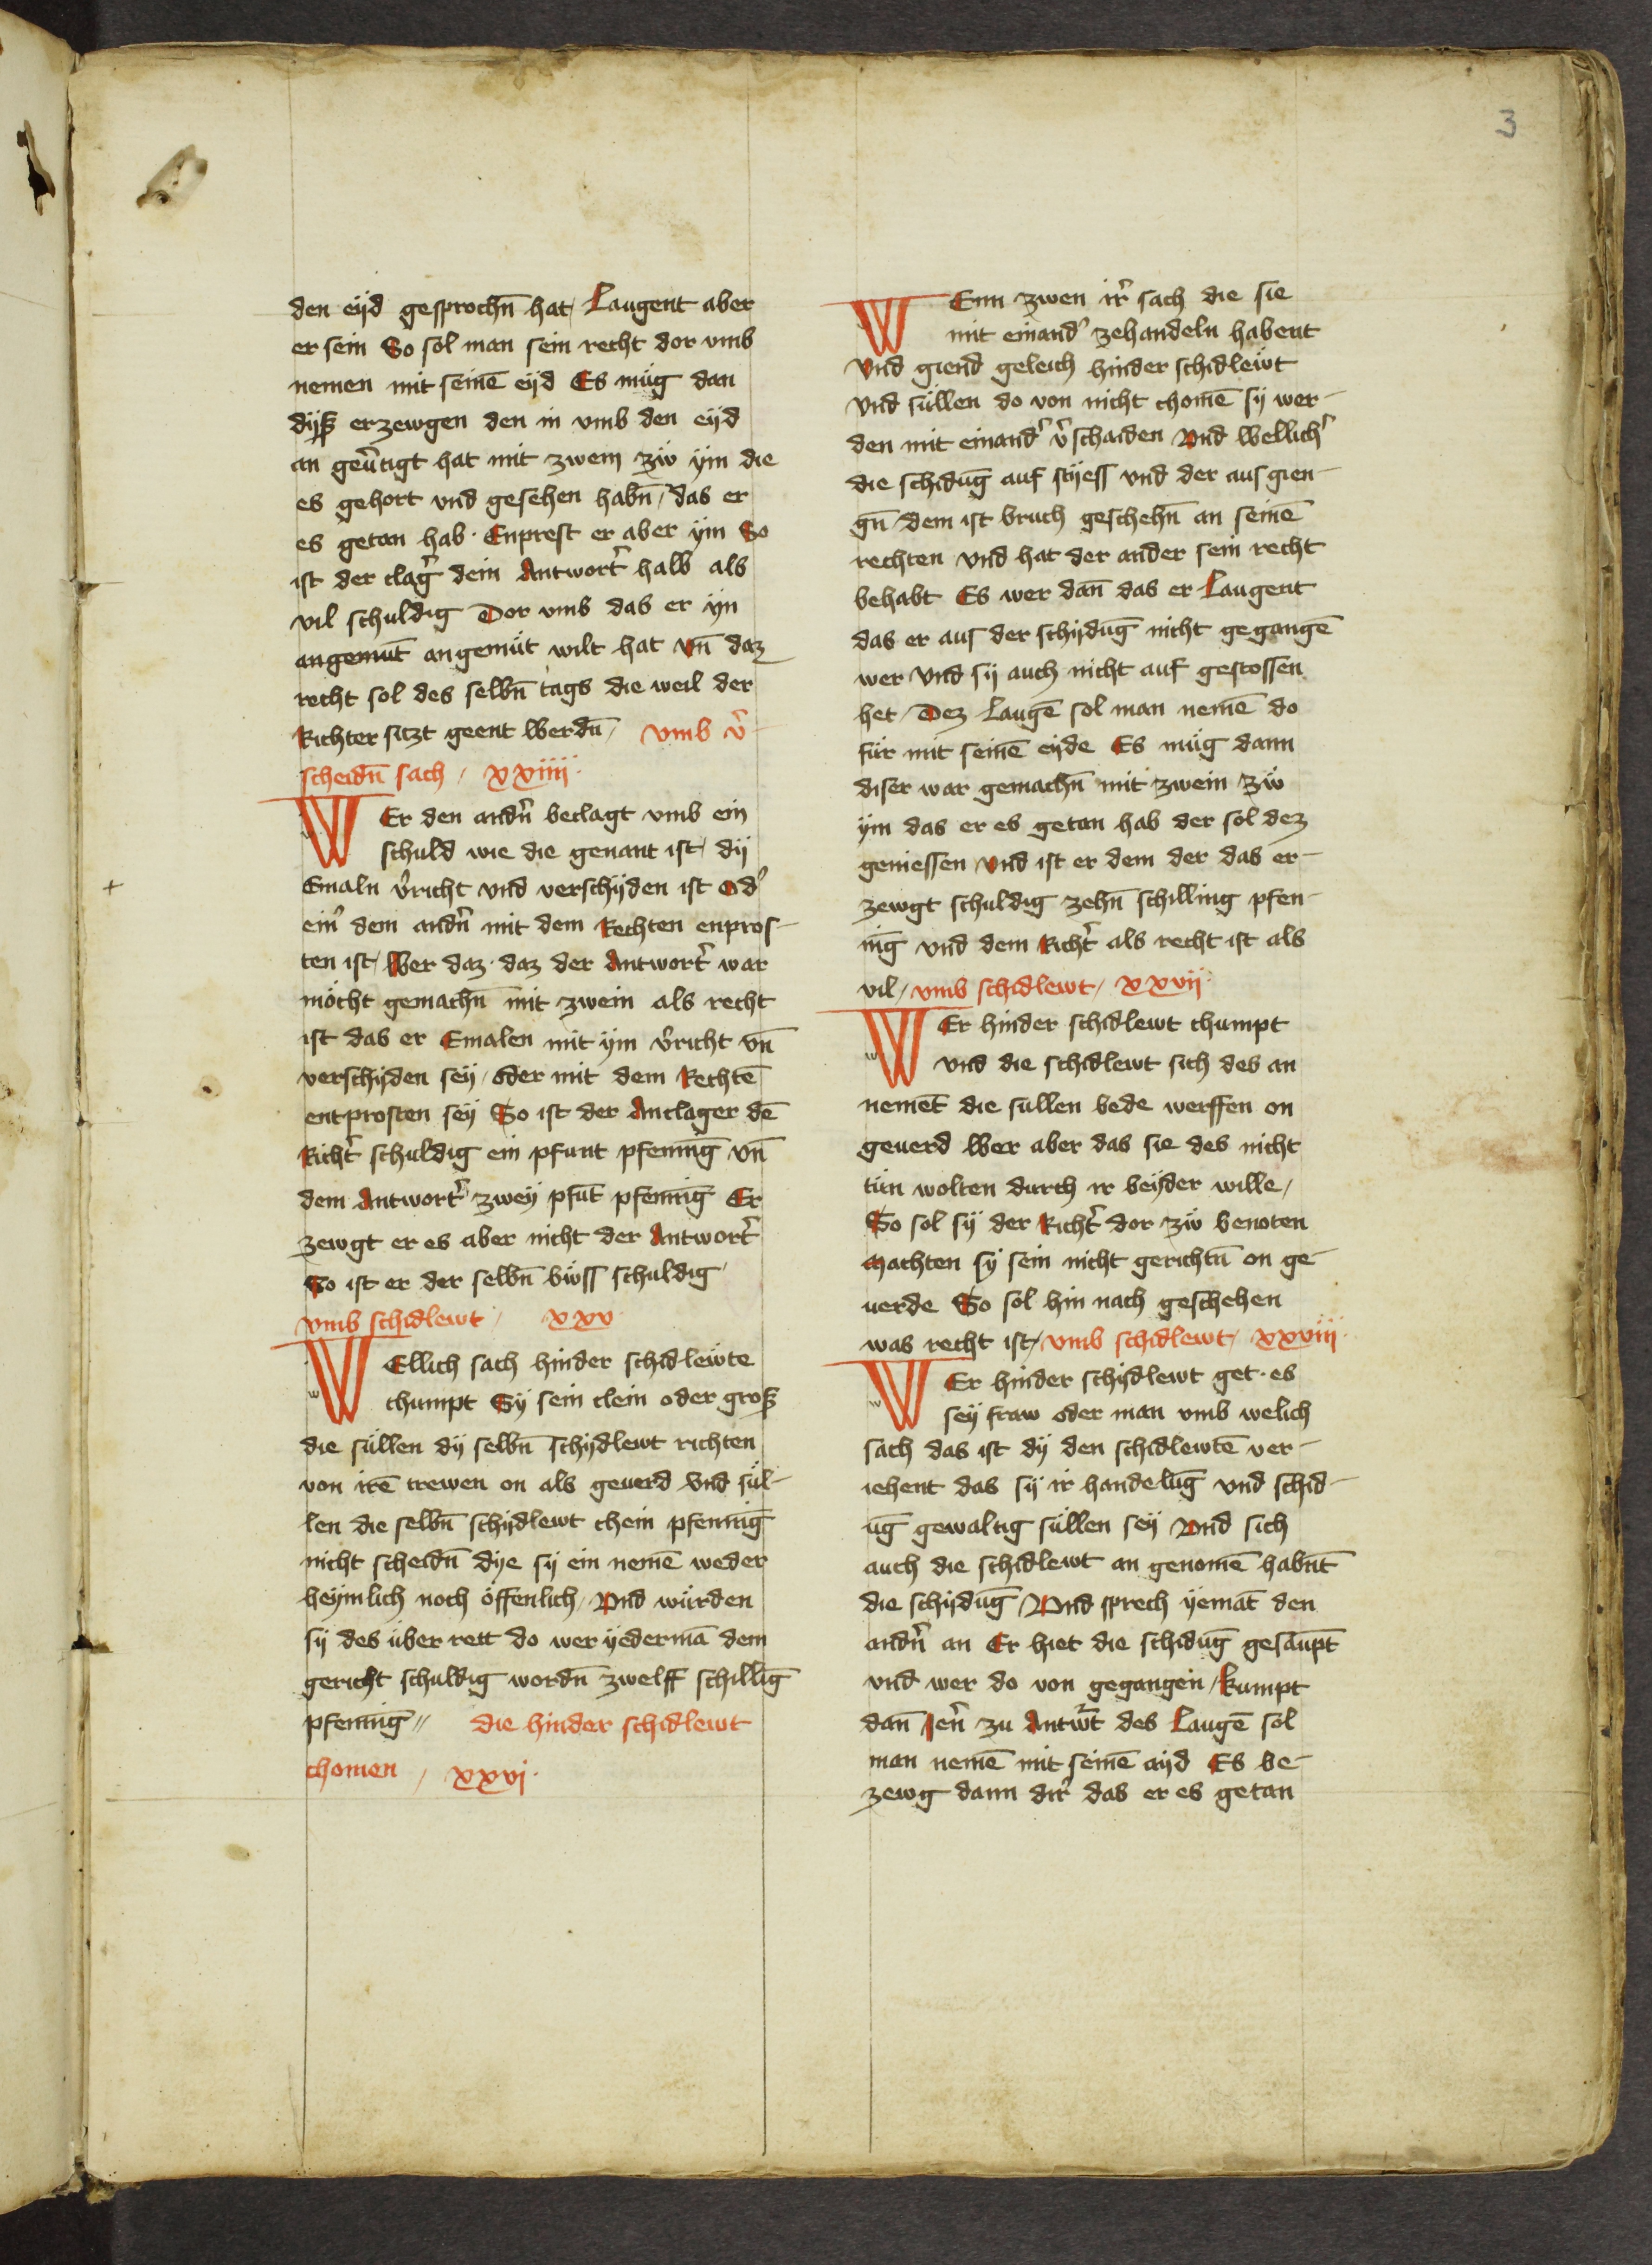 3
den eÿd gesprochn̄ hat / Laugent aber
er sein So sol man sein recht dor vmb
nemen mit seinē eÿd Es müg dan
dÿß erzewgen den in vmb den eÿd
an geu̾tigt hat mit zwein zw̍ ÿm die
es gehort vnd gesehen habn̄ / das er
es getan hab · Enprest er aber ÿm So
ist der clag̾ dem Antwort̾ halb als
vil schuldig Dor vmb das er ÿn
angemut̄ angemüt wilt hat vn̄ daz
recht sol des selbn̄ tags die weil der
Richter sitzt geent werdn̄ / vmb v̾-
scheidn̄ sach / xxiiii ·
WEr den andn̾ beclagt vmb ein
schuld wie die genant ist / dÿ
Emaln v̾richt vnd verschÿden ist od̾
ein̾ dem andn̾ mit dem Rechten enpros-
ten ist / Wer daz · daz der Antwort̾ war
möcht gemachn̄ mit zwein als recht
ist das er Emalen mit ÿm v̾richt vn̄
verschÿden seÿ / oder mit dem Rechtē
entprosten seÿ So ist der Anclager dē
Richt̾ schuldig ein pfunt pfeninḡ vn̄
dem Antwort̾ zweÿ pfūt pfenniḡ Er
zewgt er es aber nicht der Antwort̾
So ist er der selbn̄ bw̍ss schuldig
vmb schidlewt / xxv
WEllich sach hinder schidlewte
chumpt Sÿ sein clein oder groß
die süllen dÿ selbn̄ schÿdlewt richten
von irē trewen on als geuerd vnd sül-
len die selbn̄ schÿdlewt chein pfenniḡ
nicht scheidn̄ dÿe sÿ ein nemē weder
heÿmlich noch öffenlich / Vnd würden
sÿ des über rett do wer ÿedermā dem
gericht schuldig wordn̄ zwelff schillīg
pfeninḡ // die hinder schidlewt
chomen / xxvj ·
WEnn zwen ir̾ sach die sie
mit einand̾ zehandeln habent
Vnd giend geleich hinder schidlewt
vnd süllen do von nicht chomē sÿ wer-
den mit einand̾ v̾schaiden Vnd wellich̾
die schidūg auf stÿess vnd der aus gien-
gn̄ / dem ist bruch geschehn̄ an seinē
rechten vnd hat der ander sein recht
behabt Es wer dan̄ das er Laugent
das er aus der schÿdūg nicht gegangē
wer Vnd sÿ auch nicht auf gestossen
het / Dez Laugē sol man nemē do
für mit seinē eÿde Es müg dann
diser war gemachn̄ mit zwein zw̍
ÿm das er es getan hab der sol dez
geniessen vnd ist er dem der das er-
zewgt schuldig zehn̄ schilling pfen-
nīg vnd dem Richt̾ als recht ist als
vil / vmb schidlewt / xxvij ·
WEr hinder schidlewt chumpt
vnd die schidlewt sich des an
nemēt die sullen bede werffen on
geuerd Wer aber das sie des nicht
tün wolten durch ir beÿder wille /
So sol sÿ der Richt̾ dor zw̍ benoten
Machten sÿ sein nicht gerichtn̄ on ge-
uerde So sol hin nach geschehen
was recht ist / vmb schidlewt / xxviii ·
WEr hinder schÿdlewt get · es
seÿ fraw oder man vmb welich
sach das ist dÿ den schidlewtē ver-
iehent das sÿ ir handelūg vnd schid-
ūg gewaltig süllen seÿ Vnd sich
auch die schidlewt an genomē habnt̄
die schÿdūg / Vnd sprech ÿemāt den
andn̾ an Er hiet die schidūg gesaūpt
vnd wer do von gegangen / kumpt
dan̄ Jen̾ zu Antw̾t des Laugē sol
man nemē mit seinē aÿd Es be-
zewg dann dir̾ das er es getan